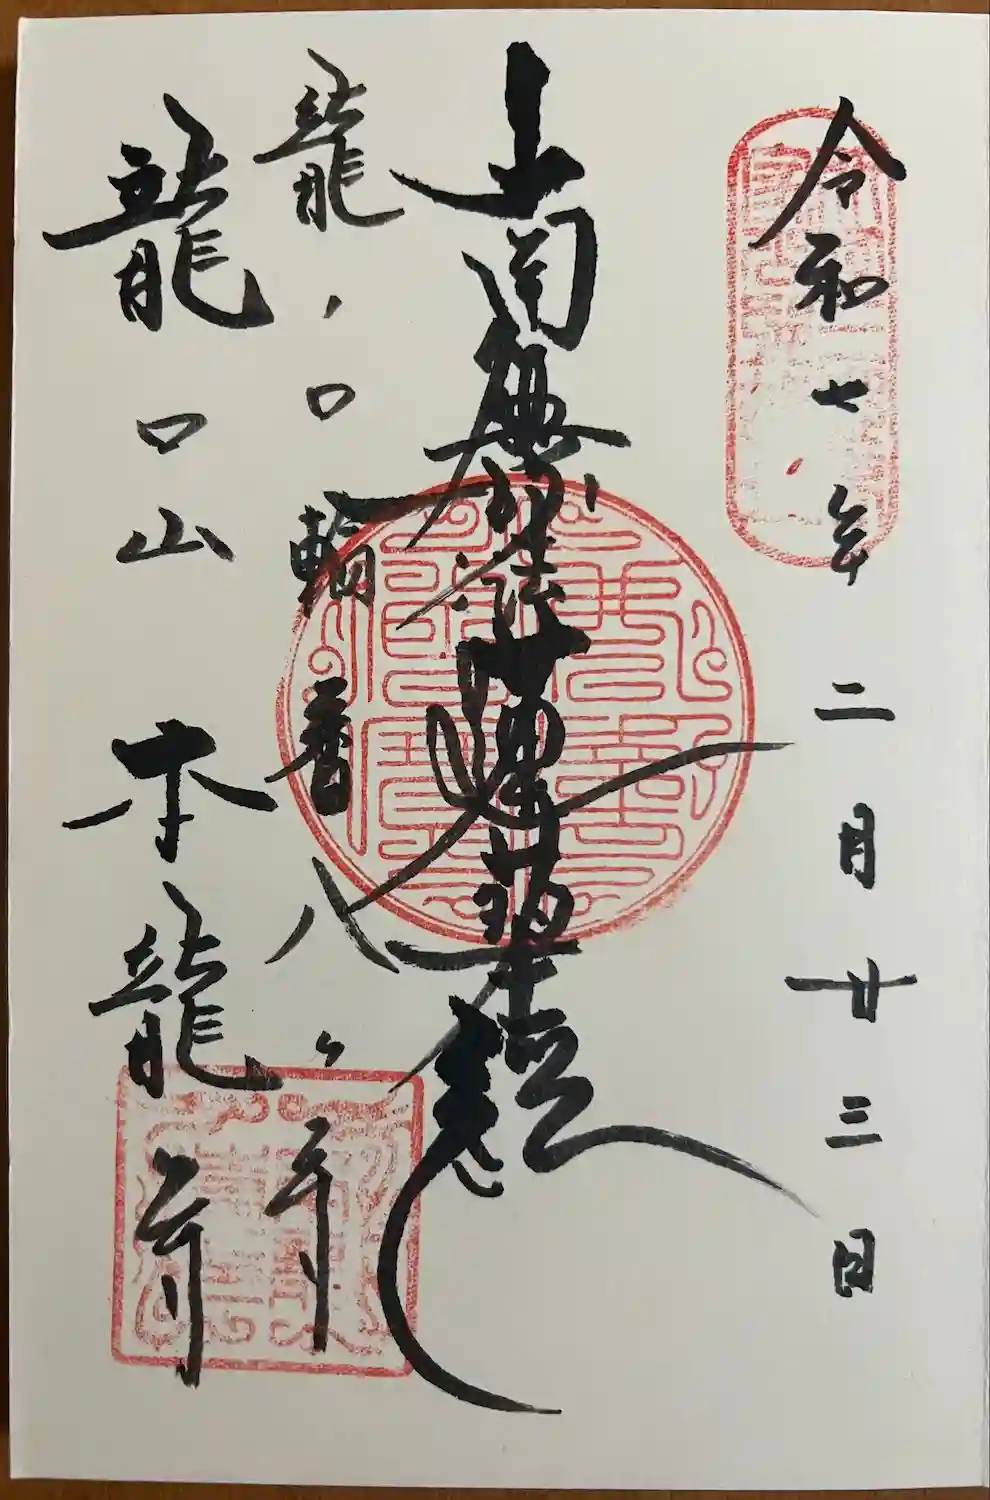 令和七年二月廿三日
南無妙法蓮華經
龍ノ口輪番八ヶ寺
龍口山 本龍寺